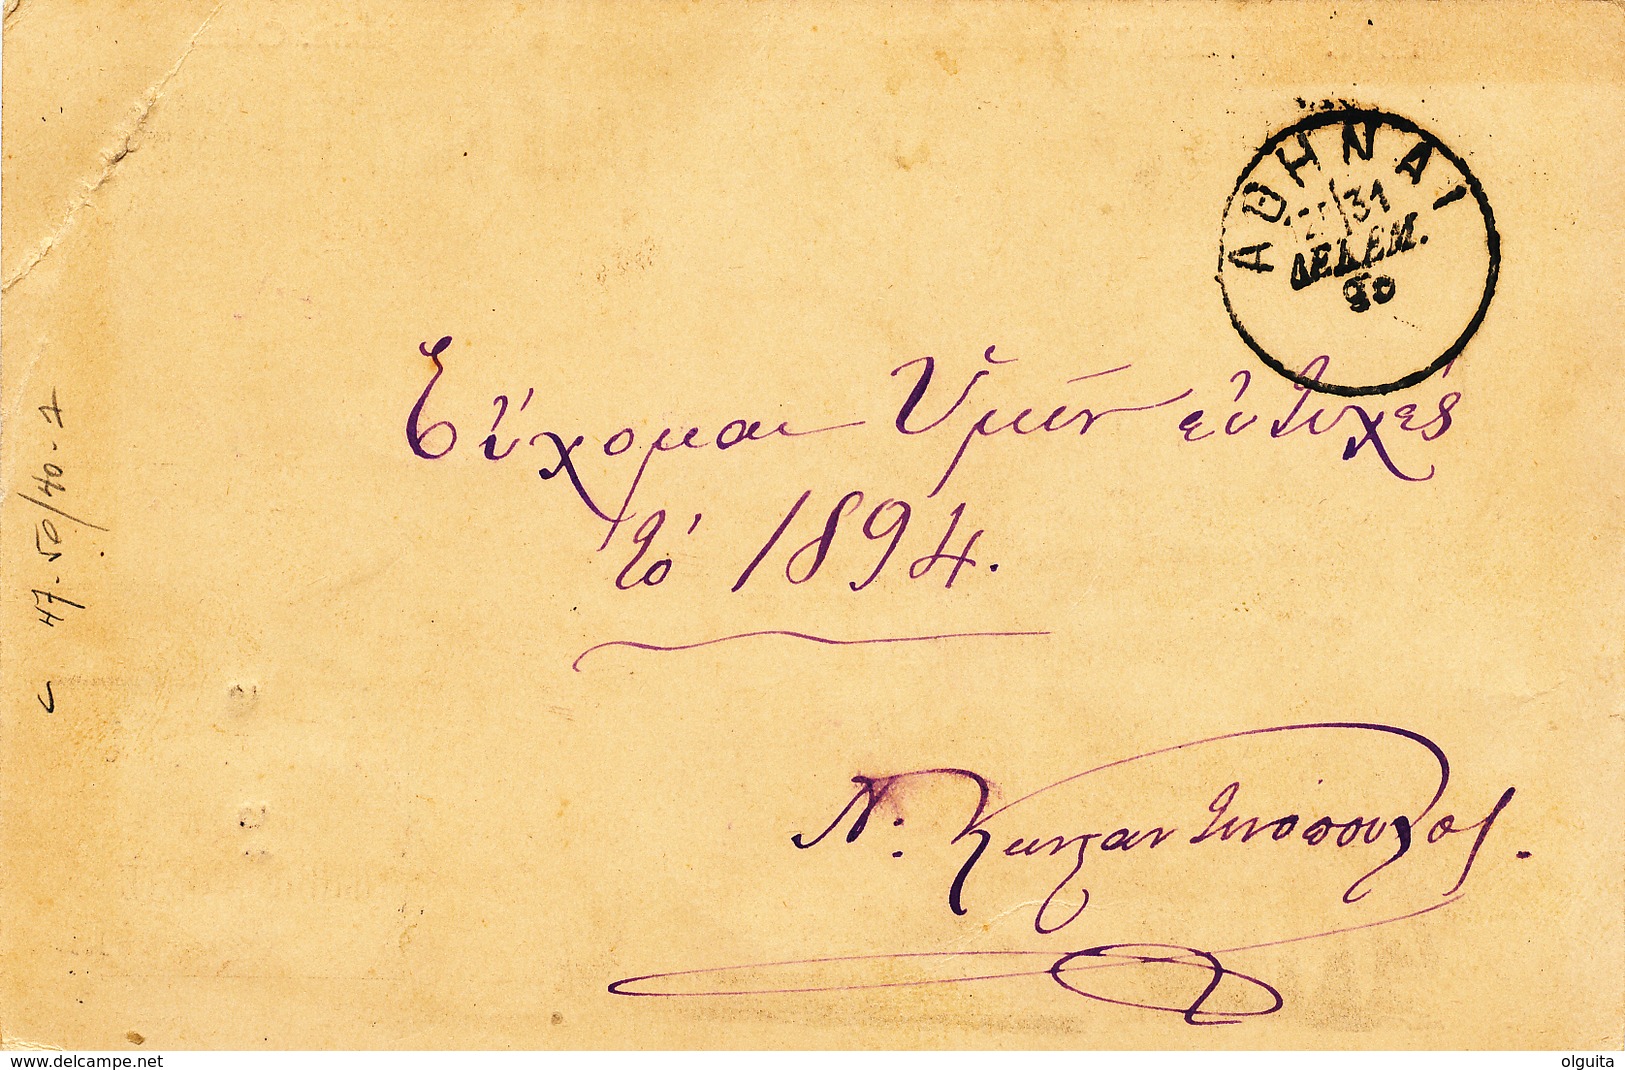 ΑΘΗΝΑΙ
31
ΔΕΚΕΜ.
Εὔχομαι Ὑμῖν εὐτυχὲς
τὸ 1894.
Ν. Κωνσταντινόπουλος.
47-50/40-7
delcampe.net
olguita